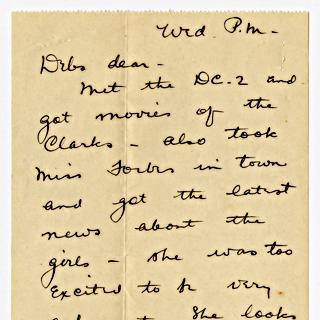 Wed. P.M. -
Debs dear -
Met the DC-2 and
got movies of the
Clarks - also took
Miss Forbes in town
and got the latest
news about the
girls - she was too
excited to be very
She looks